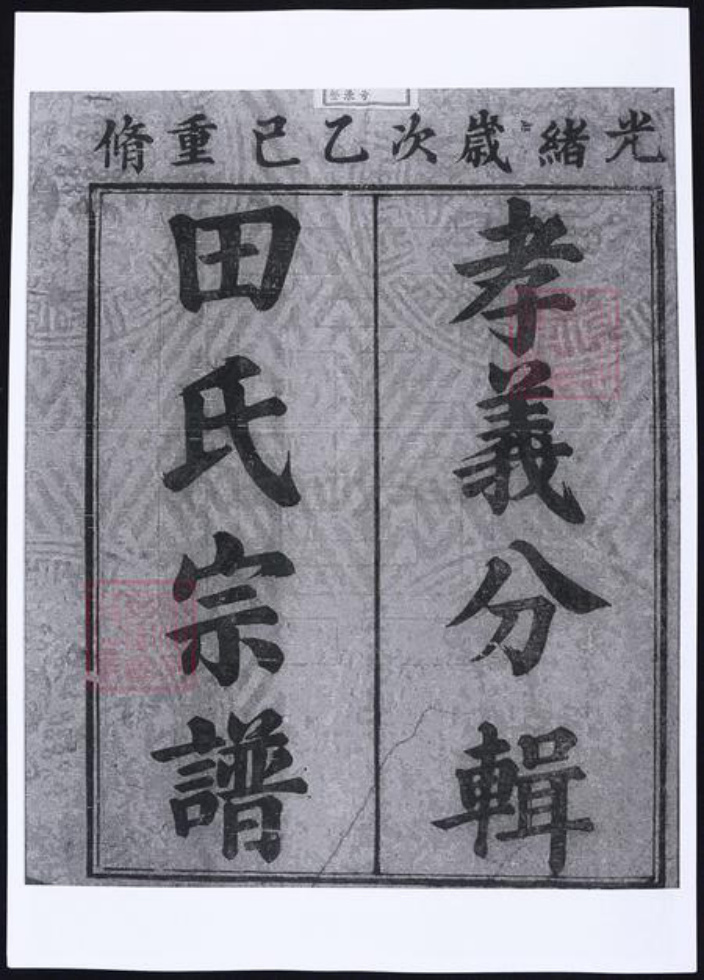 光緒歲次乙巳重脩
孝義分輯
田氏宗譜